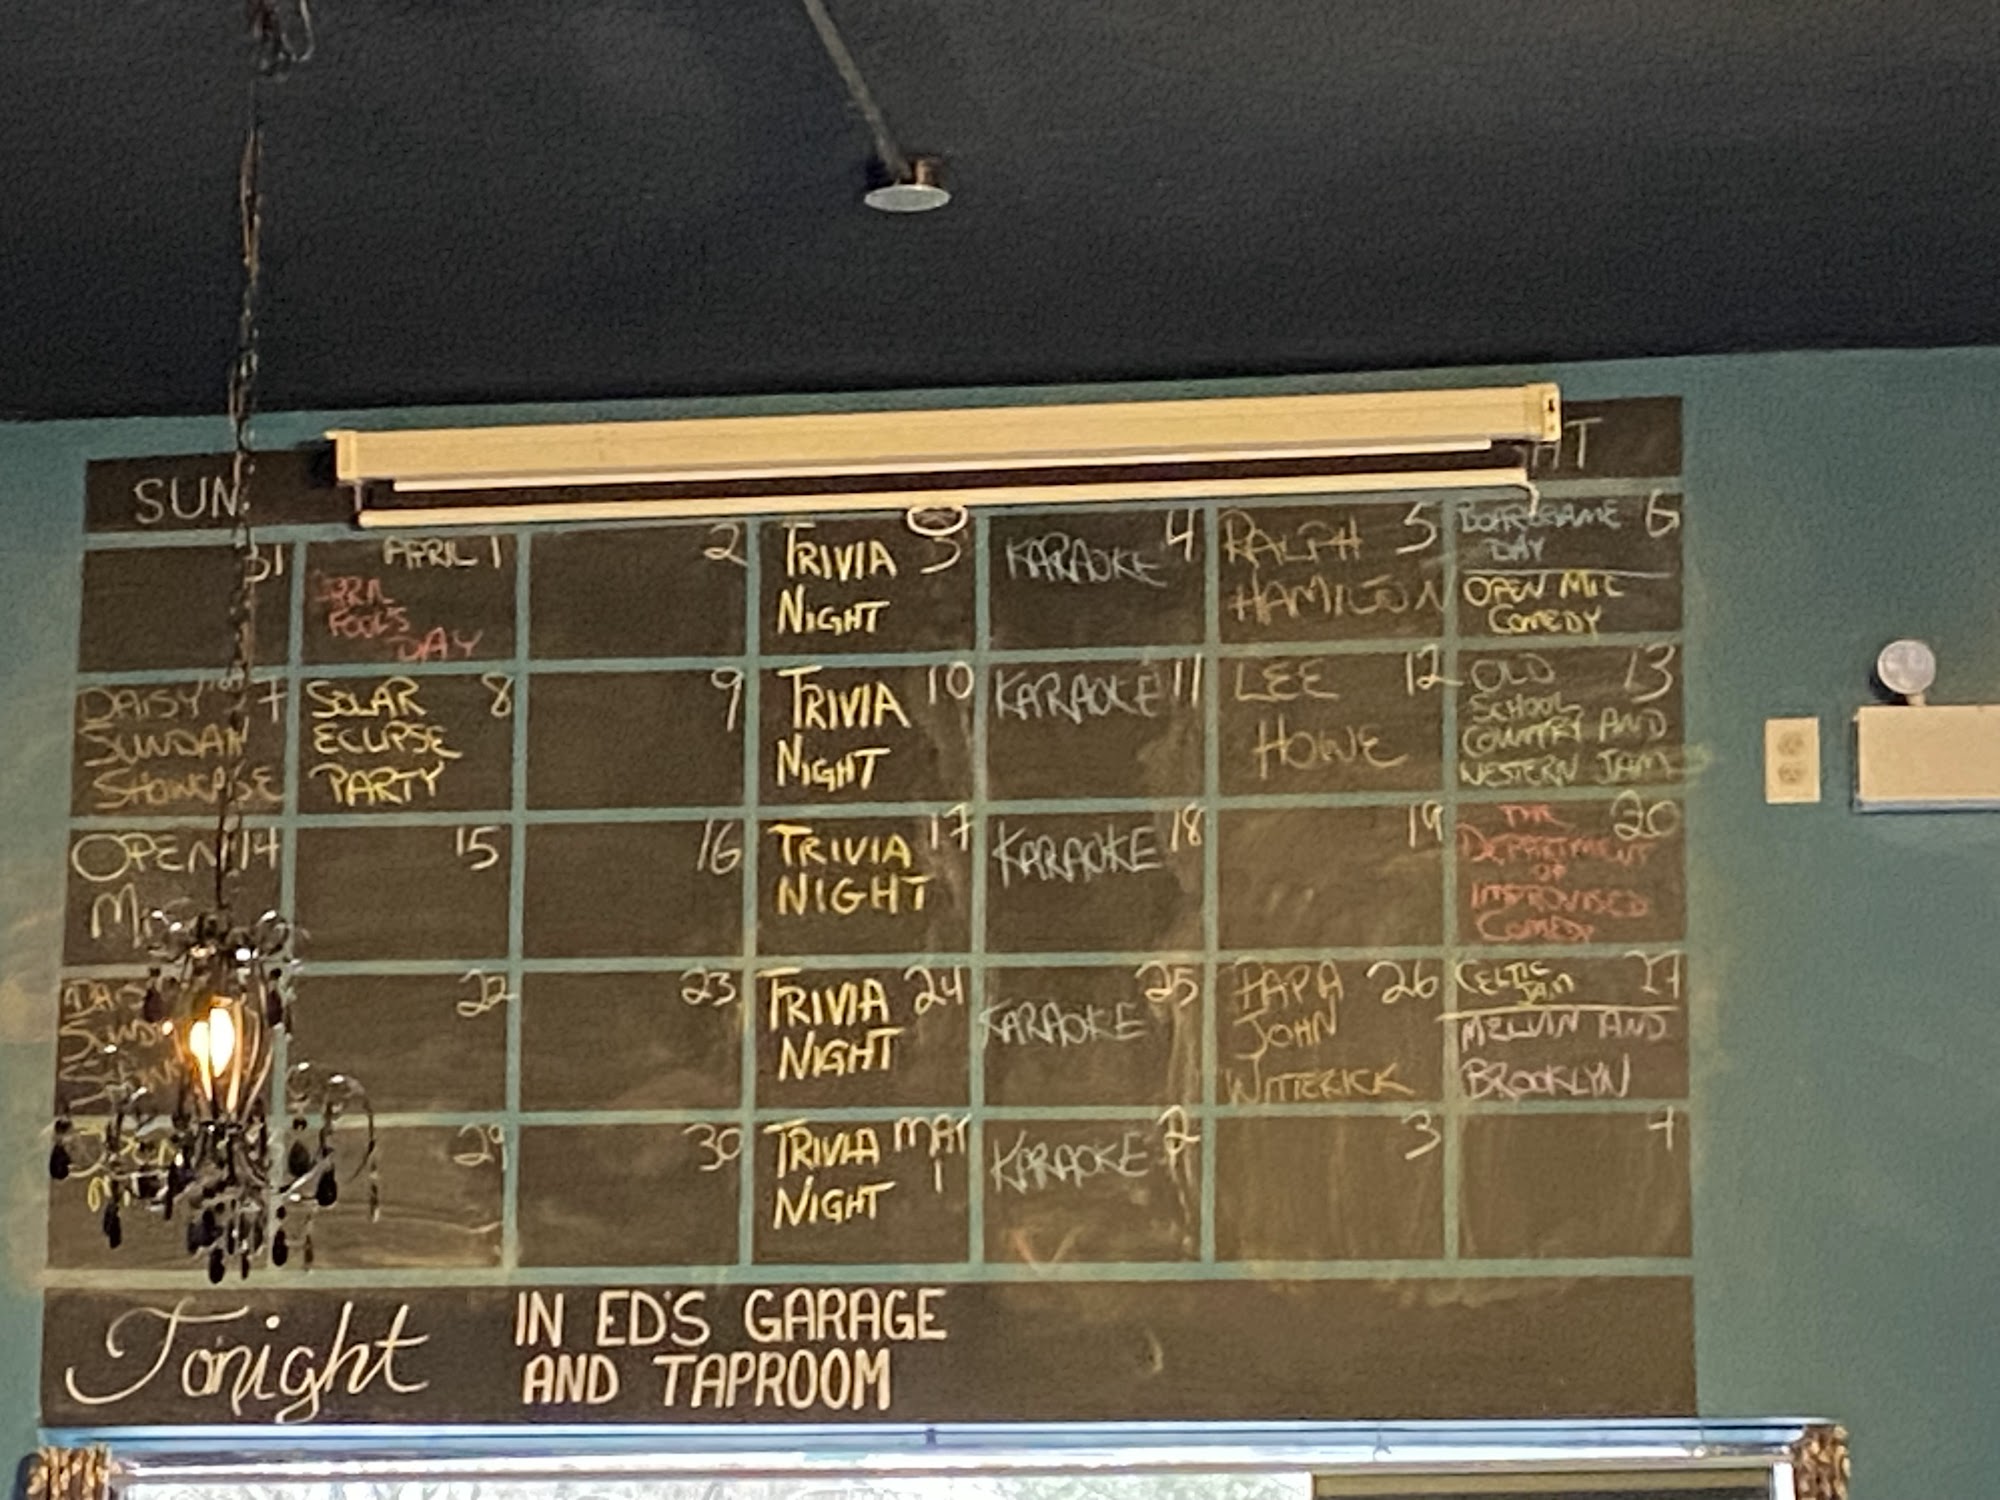 SUN
31
APRIL 1
FOOLS
DAY
2
TRIVIA 3
NIGHT
KARAOKE 4
RALPH 5
HAMILTON
BOARDGAME 6
DAY
OPEN MIC
COMEDY
DAISY 7
SUNDAY
SHOWCASE
SOLAR 8
ECLIPSE
PARTY
9
TRIVIA 10
NIGHT
KARAOKE 11
LEE 12
HOWE
OLD 13
SCHOOL
COUNTRY AND
WESTERN JAM
OPEN 14
15
16
TRIVIA 17
NIGHT
KARAOKE 18
19
THE 20
DEPARTMENT
OF
IMPROVISED
COMEDY
22
23
TRIVIA 24
NIGHT
KARAOKE 25
PAPA 26
JOHN
WITTERICK
CELTIC 27
JAM
MELVIN AND
BROOKLYN
OPEN
29
30
TRIVIA MAY
NIGHT 1
KARAOKE 2
3
4
Tonight IN ED'S GARAGE
AND TAPROOM